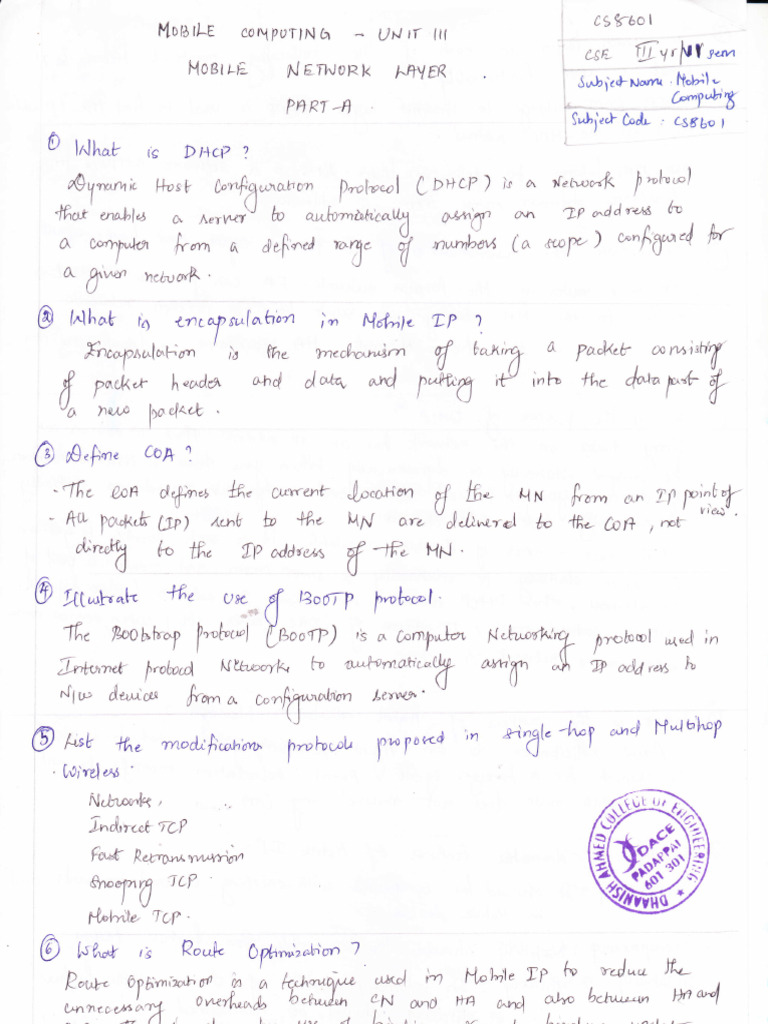 MOBILE COMPUTING - UNIT III
MOBILE NETWORK LAYER.
PART-A.
CS8601
CSE III yr/VI sem
Subject Name: Mobile
Computing
Subject Code: CS8601
① What is DHCP?
Dynamic Host Configuration Protocol (DHCP) is a Network protocol
that enables a server to automatically assign an IP address to
a computer from a defined range of numbers (a scope) configured for
a given network.
② What is encapsulation in Mobile IP?
Encapsulation is the mechanism of taking a packet consisting
of packet header and data and putting it into the data part of
a new packet.
③ Define COA?
- The COA defines the current location of the MN from an IP point of
view.
- All packets (IP) sent to the MN are delivered to the COA, not
directly to the IP address of the MN.
④ Illustrate the use of BOOTP protocol.
The Bootstrap protocol (BOOTP) is a computer Networking protocol used in
Internet protocol Networks to automatically assign an IP address to
N/w devices from a configuration server.
⑤ List the modifications protocols proposed in single-hop and Multihop
Wireless.
Networks,
Indirect TCP
Fast Retransmission
Snooping TCP
Mobile TCP.
DHAANISH AHMED COLLEGE OF ENGINEERING
DACE
PADAPPAI
601 301
⑥ What is Route Optimization?
Route Optimization is a technique used in Mobile IP to reduce the
unnecessary overheads between CN and HA and also between HA and